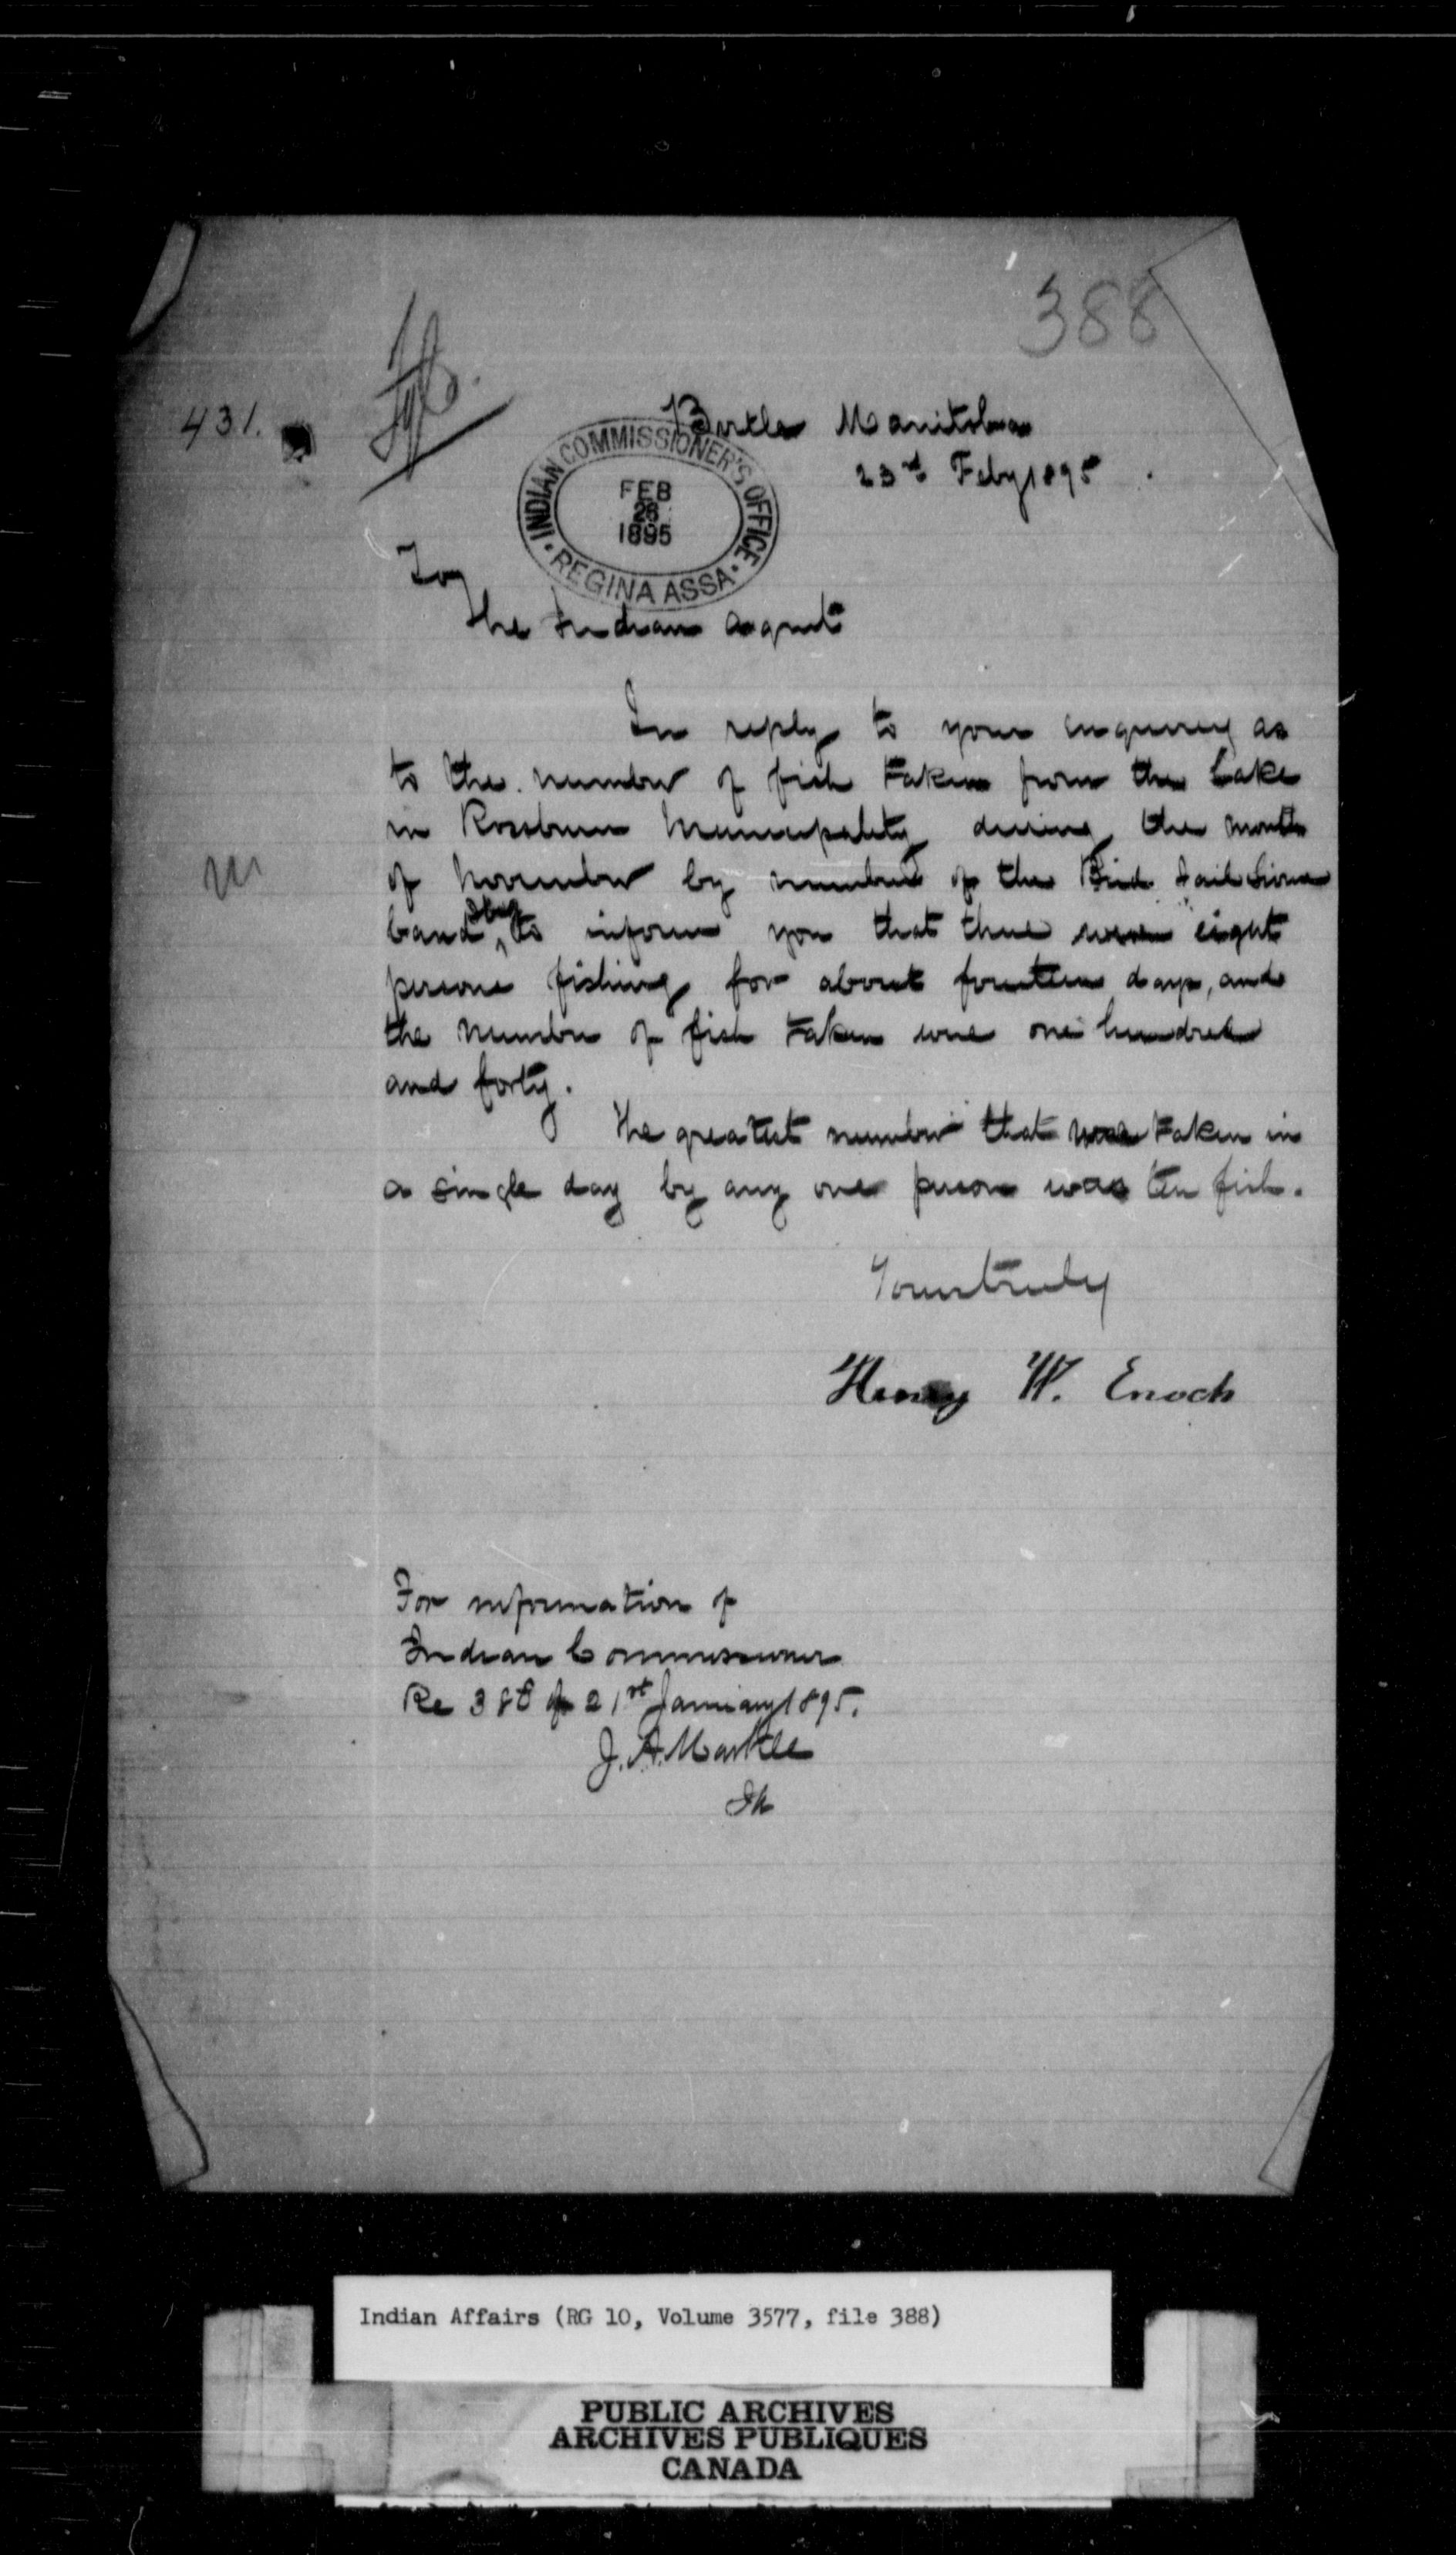 388
431.
Birtle Manitoba
23rd Feby 1895.
INDIAN COMMISSIONER'S OFFICE
FEB
26
1895
REGINA ASSA.
To
The Indian Agent
In reply to your inquirey as
to the number of fish taken from the Lake
in Rossburn Municipality during the month
of November by members of the Bird Tail Sioux
band I beg to inform you that there were eight
persons fishing for about fourteen days, and
the number of fish taken were one hundred
and forty.
The greatest number that was taken in
a single day by any one person was ten fish.
Yours truly
Henry W. Enoch
For information of
Indian Commissioner
Re 388 of 21st January 1895.
J. A. Markle
IA
Indian Affairs (RG 10, Volume 3577, file 388)
PUBLIC ARCHIVES
ARCHIVES PUBLIQUES
CANADA